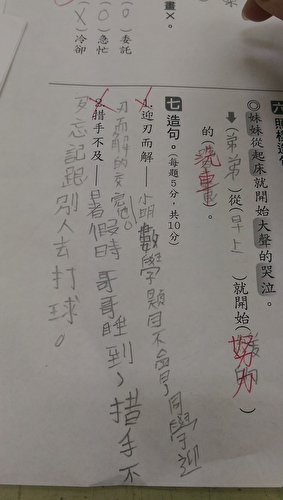 畫×。
(○)委託
(○)急忙
(×)冷卻
◎妹妹從起床就開始大聲的哭泣。
(弟弟)從(早上)就開始(努力)
的(洗車)。
七 造句。(每題5分,共10分)
1.迎刃而解——小明數學題目不會同學迎
刃而解的交他
2.措手不及——暑假時哥哥睡到措手不
及忘記跟別人去打球。